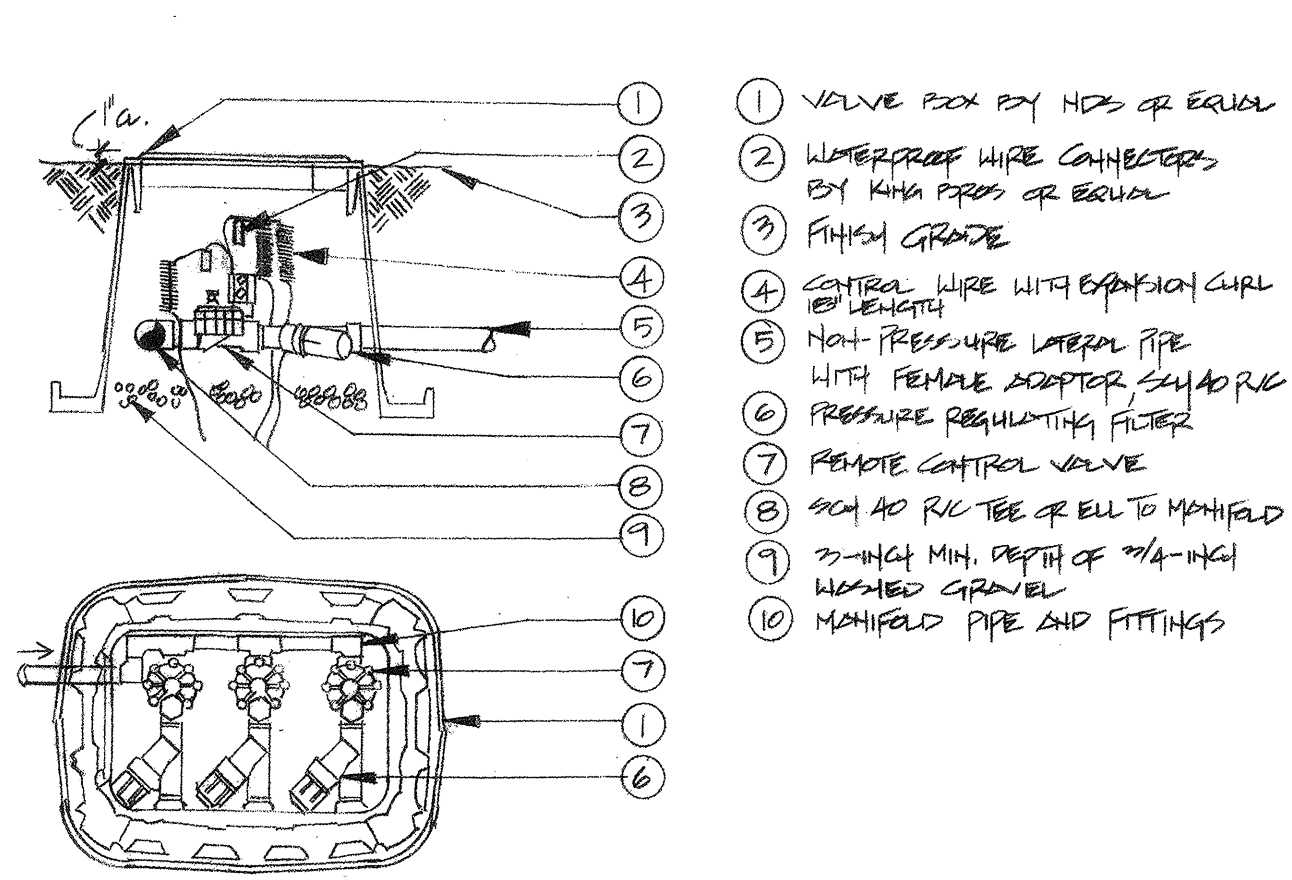 1"a.
1
2
3
4
5
6
7
8
9
10
7
1
6
1 VALVE BOX BY NDS OR EQUAL
2 WATERPROOF WIRE CONNECTORS
BY KING BROS OR EQUAL
3 FINISH GRADE
4 CONTROL WIRE WITH EXPANSION CURL
18" LENGTH
5 NON-PRESSURE LATERAL PIPE
WITH FEMALE ADAPTOR, SCH 40 PVC
6 PRESSURE REGULATING FILTER
7 REMOTE CONTROL VALVE
8 SCH 40 PVC TEE OR ELL TO MANIFOLD
9 3-INCH MIN. DEPTH OF 3/4-INCH
WASHED GRAVEL
10 MANIFOLD PIPE AND FITTINGS